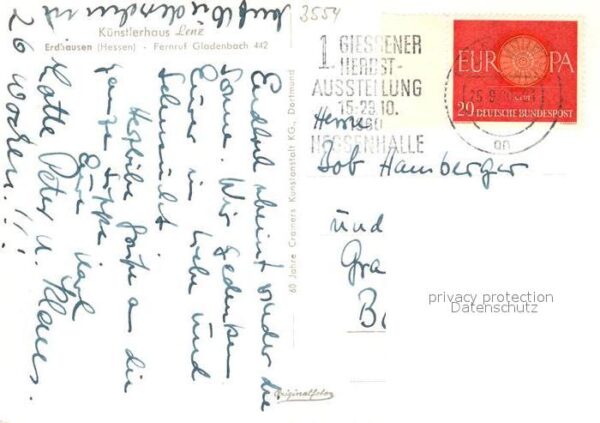 Künstlerhaus Lenz
Erdhausen (Hessen) - Fernruf Gladenbach 442
3554
1. GIESSENER
HERBST-
AUSSTELLUNG
15-23.10.
1960
HESSENHALLE
EUROPA
29 DEUTSCHE BUNDESPOST
Endlich scheint wieder die
Sonne. Wir gedenken
Eurer in Liebe und
Sehnsucht
Herzliche Grüße an die
ganze Sippe
Eure Karl
Lotte Peter u. Klaus.
26 Wochen!!!
auf Wiedersehen in
60 Jahre Cramers Kunstanstalt KG., Dortmund
Originalfoto
Herrn
Bob Hamberger
und
Gra
B
privacy protection
Datenschutz